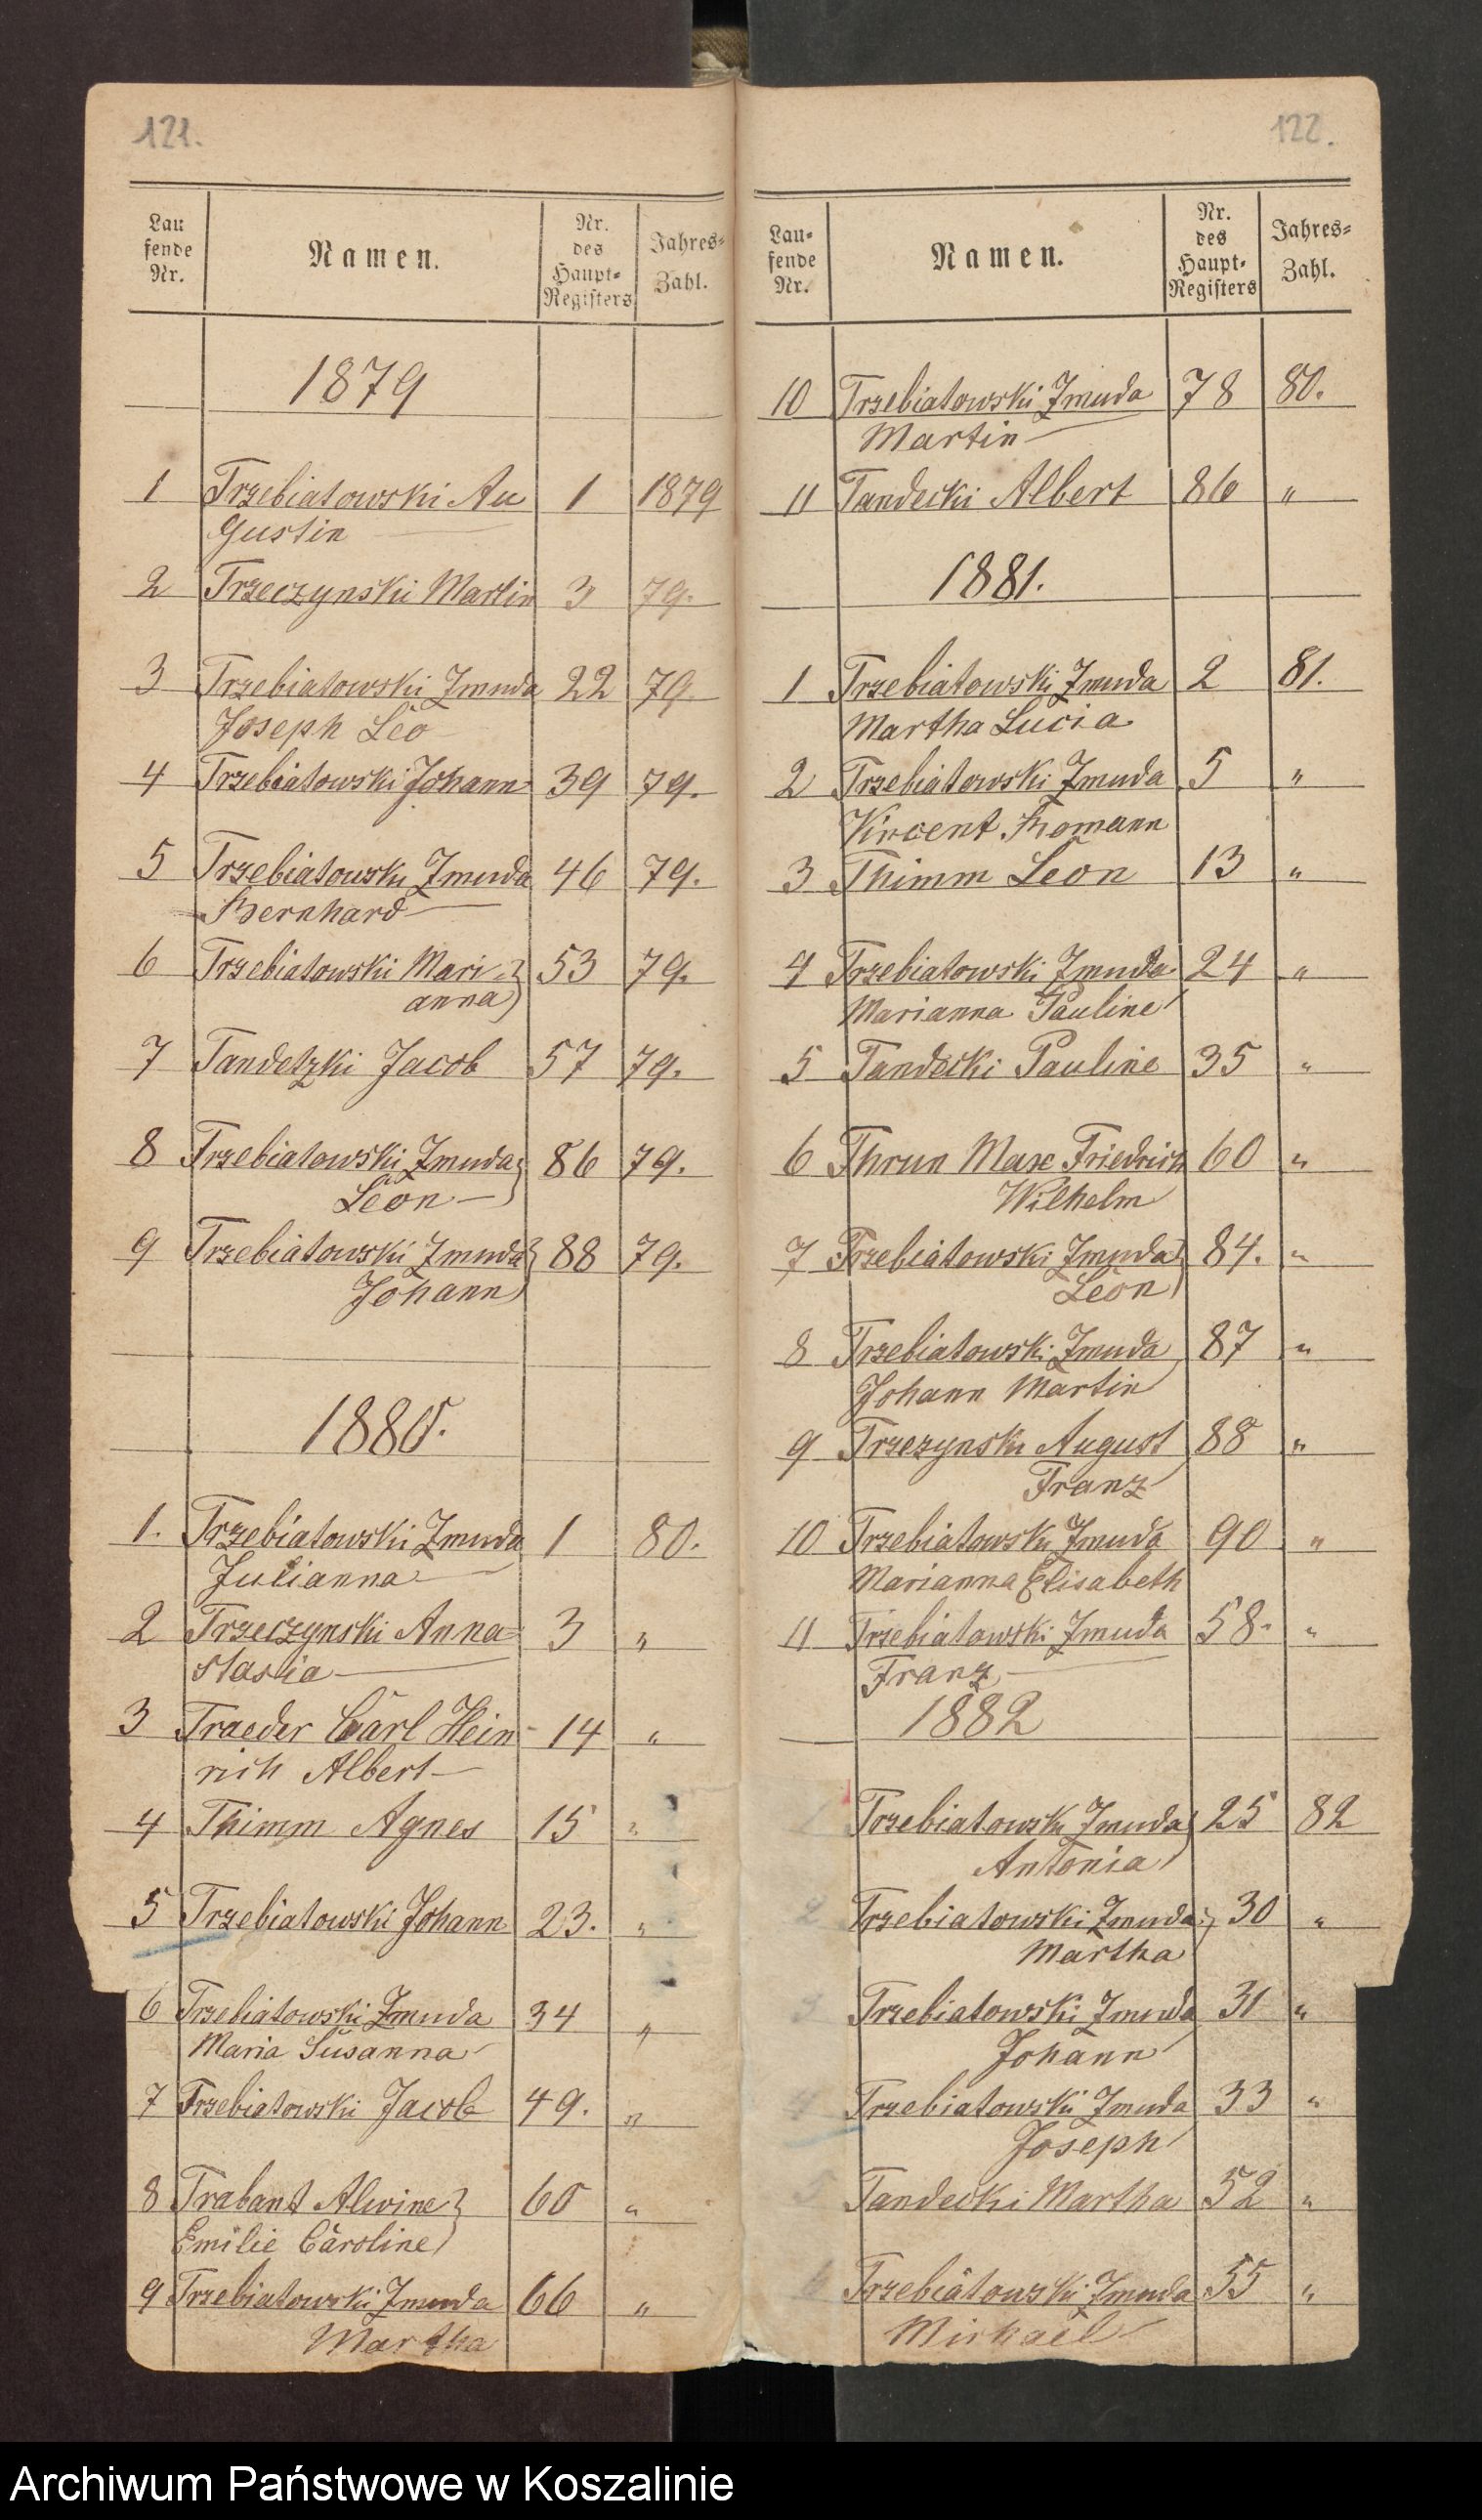 121.
Lau
fende
Nr.
Namen.
Nr.
des
Haupt-
Registers
Jahres-
Zahl.
1879
1 Trzebiatowski Au 1 1879
gustin
2 Trzeczynski Martin 3 79.
3 Trzebiatowski Zmuda 22 79.
Joseph Leo
4 Trzebiatowski Johann 39 79.
5 Trzebiatowski Zmuda 46 79.
Bernhard
6 Trzebiatowski Mari- 53 79.
anna
7 Tandetzki Jacob 57 79.
8 Trzebiatowski Zmuda 86 79.
Leon
9 Trzebiatowski Zmuda 88 79.
Johann
1880.
1. Trzebiatowski Zmuda 1 80.
Julianna
2 Trzeczynski Anna- 3 "
stasia
3 Traeder Carl Hein- 14 "
rich Albert
4 Thimm Agnes 15 "
5 Trzebiatowski Johann 23. "
6 Trzebiatowski Zmuda 34 "
Maria Susanna
7 Trzebiatowski Jacob 49. "
8 Trabant Alwine 60 "
Emilie Caroline
9 Trzebiatowski Zmuda 66 "
Martha
122.
Lau-
fende
Nr.
Namen.
Nr.
des
Haupt-
Registers
Jahres-
Zahl.
10 Trzebiatowski Zmuda 78 80.
Martin
11 Tandecki Albert 86 "
1881.
1 Trzebiatowski Zmuda 2 81.
Martha Lucia
2 Trzebiatowski Zmuda 5 "
Vincent Romann
3 Thimm Leon 13 "
4 Trzebiatowski Zmuda 24 "
Marianna Pauline
5 Tandecki Pauline 35 "
6 Thrun Max Friedrich 60 "
Wilhelm
7 Trzebiatowski Zmuda 84. "
Leon
8 Trzebiatowski Zmuda 87 "
Johann Martin
9 Trzezynski August 88 "
Franz
10 Trzebiatowski Zmuda 90 "
Marianna Elisabeth
11 Trzebiatowski Zmuda 58. "
Franz
1882
1 Trzebiatowski Zmuda 25 82
Antonia
2 Trzebiatowski Zmuda 30 "
Martha
3 Trzebiatowski Zmuda 31 "
Johann
4 Trzebiatowski Zmuda 33 "
Joseph
5 Tandecki Martha 52 "
6 Trzebiatowski Zmuda 55 "
Michael
Archiwum Państwowe w Koszalinie